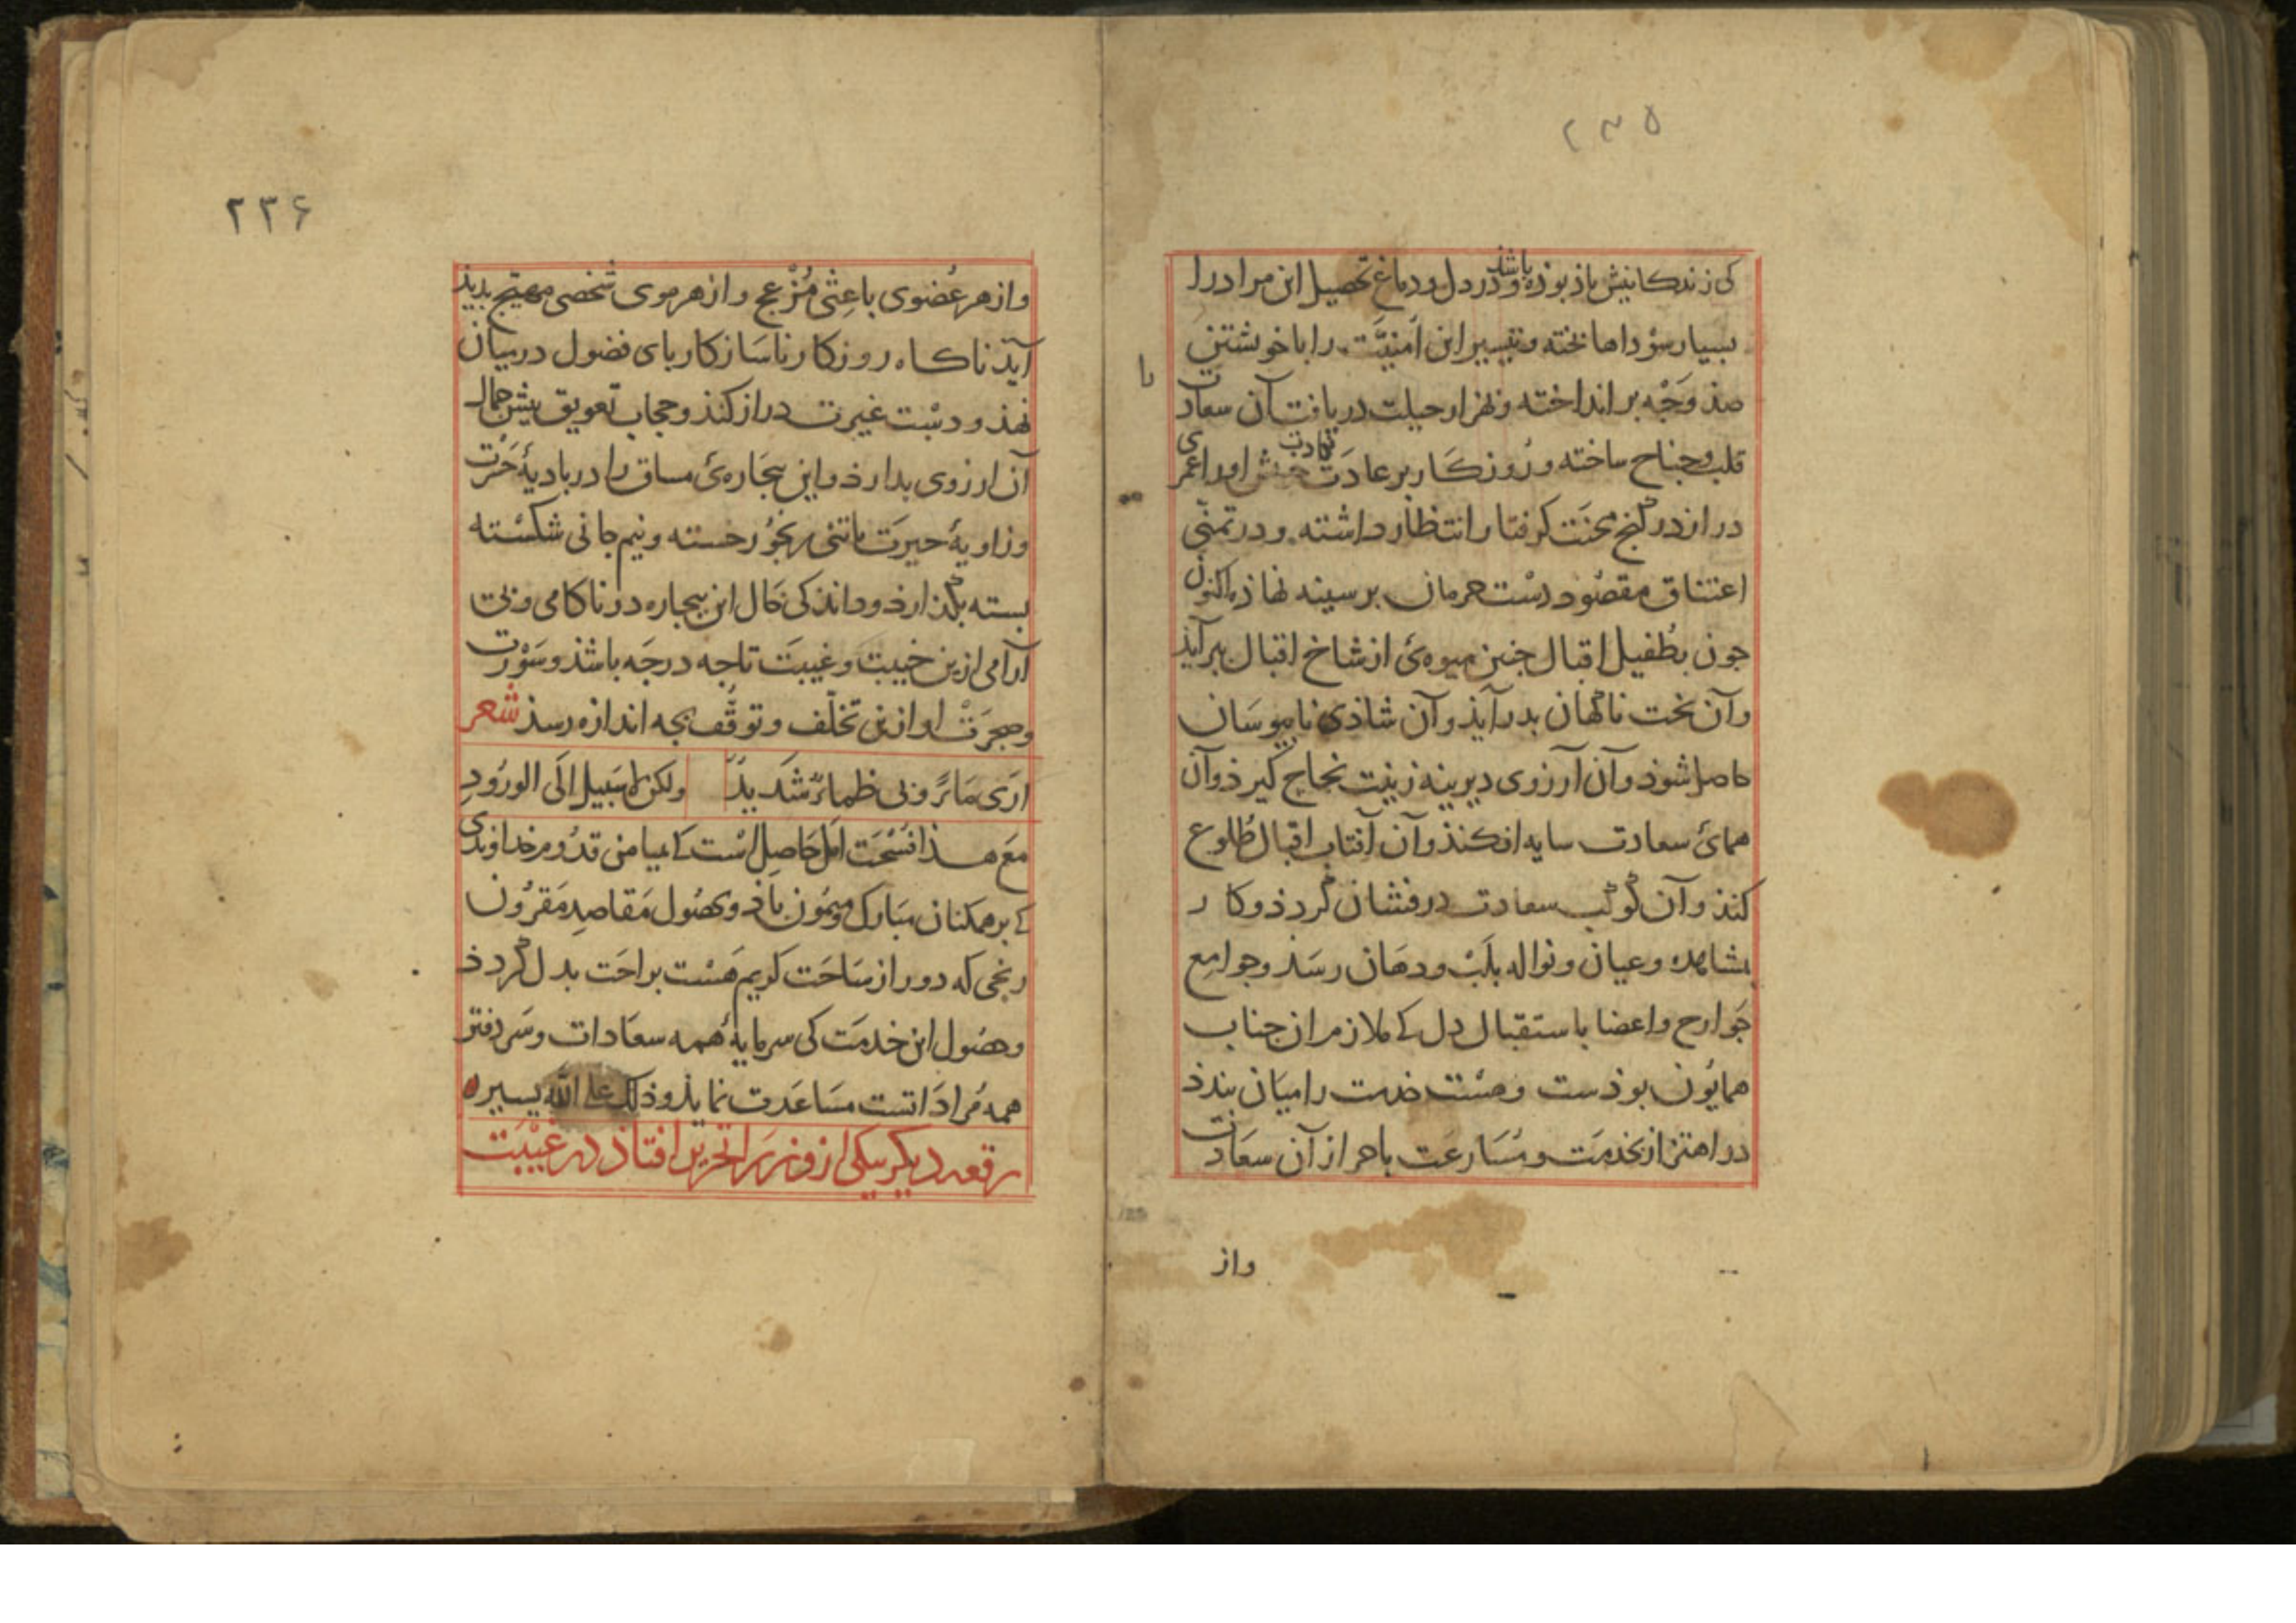 ۲۳۵
کی زندکانیش باذ بوذه باشد و در دل و دماغ تحصیل این مراد را
بسیار سوداها بخته و تیسیر این اُمنیَّت را با خویشتن
صذ وَجْه بر انداخته و هزار حیلت دریافت آن سعادت
قلب و جناح ساخته و رُوزکَار بر عادَت او را عمری
دراز در کنج محنَت کرفتار انتظار داشته و در تمنّی
اعتناق مقصُود دسْت حرمان بر سینه نهاذه اکنون
جون بطُفیل اقبال جنین میوه‌ئ از شاخ اقبال بیر آیذ
وآن بخت ناکهان بدرآیذ وآن شاذی نابیوسَان
حاصل شوذ وآن آرزوی دیرینه زینت نجاح کیرذ وآن
همائ سعادت سایه افکنذ وآن آفتاب اقبال طُلوع
کنذ وآن کوکب سعادت درفشان کرذذ و کار
بشاهده و عیان و نواله بلَبْ و دهَان رسَذ و جوامع
جَوارح و اعضا باستقبال دل کی ملازم ان جناب
همایُون بوذست و هسْت خدمت را میَان بندذ
در اهتزاز بخدمَت و مُسَارعَت باحراز آن سعَادت
واز
۲۳۶
واز هر عُضوی باعِثی مُزْعج و از هر موی شخصی مهیّج بدیذ
آیَذ ناکاه روزکار ناسَازکار بای فضول درمیان
نهذ و دسْت غیرت دراز کنذ و حجاب تعویق بیش جمال
آن ارزوی بدارذ و این بیجَاره‌ئ مساق را در بادیهٔ حَسْرت
و زاویهٔ حیرَت با تنی رنجُور خسته و نیم جانی شکسْته
بسته بکذارذ و داند کی حَال این بیجاره در ناکامی و بی
آرامی ازین خیبت و غیبَت تا جه درجَه باشذ و سَوْرَت
وهجرَتْ او ازین تخلّف و توقّف بجه اندازه رسذ شعر
اَرَی مَاءً و بی ظماءٌ شَدیدٌ ولکن لا سَبیل الَی الورُودِ
مَعَ هـذا فُسْحَت امل حَاصِل اسْت کی بمیامن قدُوم خداوندی
کی بر همکنان مبَارک و میمُون باذ و بحصُول مَقاصِد مَقرُون
رنجی که دور از سَاحَت کریم هَسْت براحَت بدل کرذذ
و حصُول این خدمَت کی سرمایهٔ همه سعَادات و سَر دفتر
همه مُرادَاتست مسَاعَدت نمایذ و ذلک علی الله یسیر
رقعه دیکر بیکی از وزرَا تحریر افتاذ در غَیْبَت